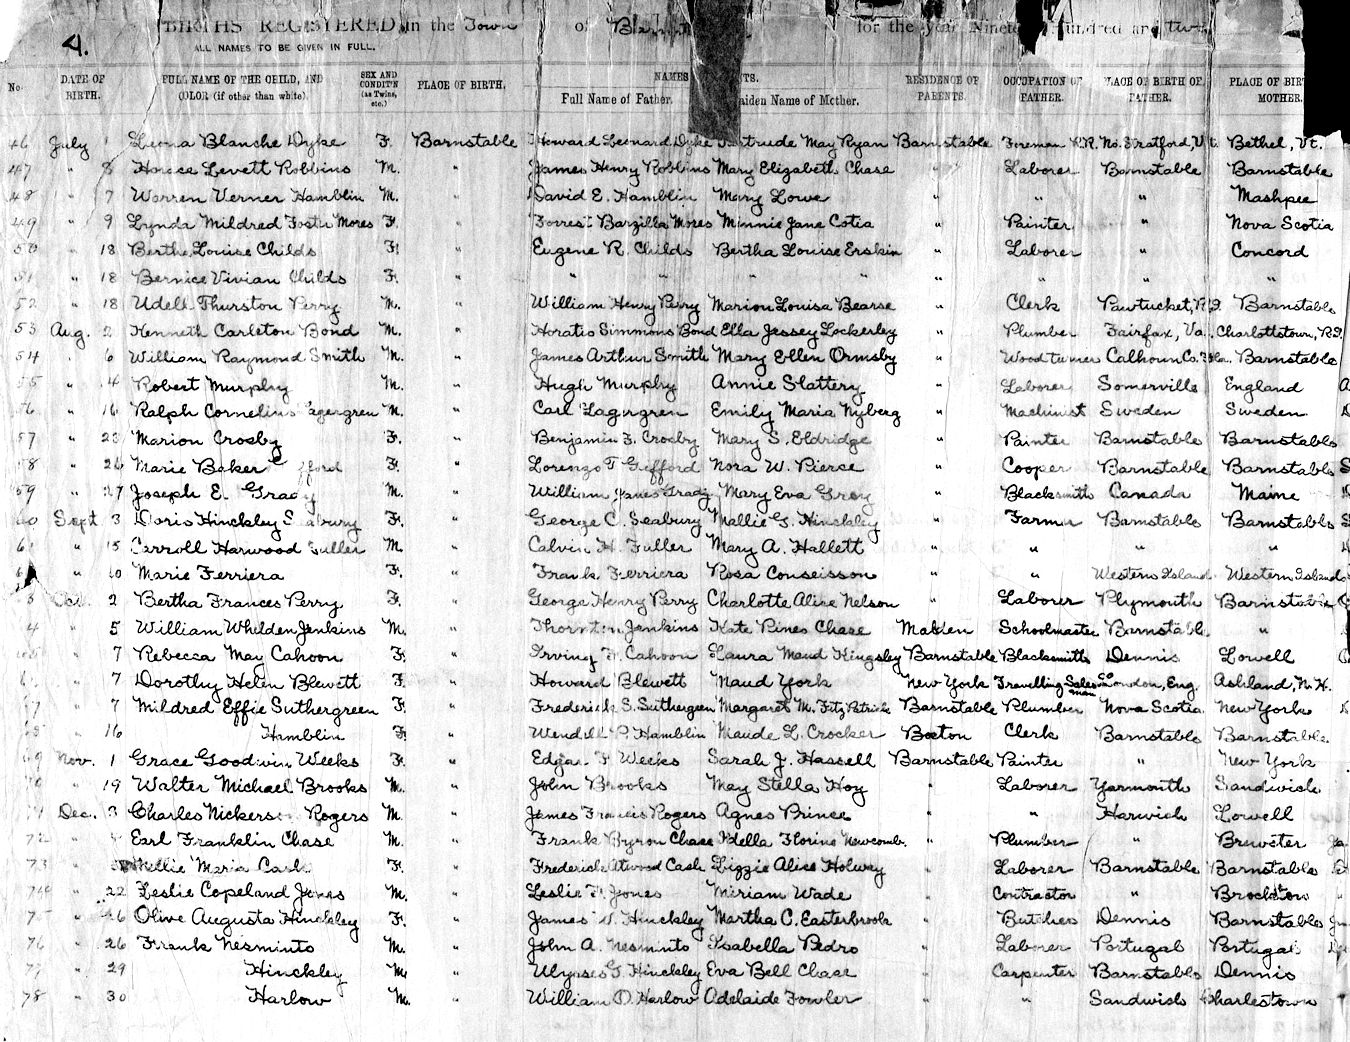 4.
BIRTHS REGISTERED in the Town of for the year Hundred and
ALL NAMES TO BE GIVEN IN FULL.
No. DATE OF BIRTH. FULL NAME OF THE CHILD, AND COLOR (if other than white). SEX AND CONDIT'N (as Twins, etc.) PLACE OF BIRTH. NAMES Full Name of Father. Maiden Name of Mother. RESIDENCE OF PARENTS. OCCUPATION OF FATHER. PLACE OF BIRTH OF FATHER. PLACE OF BIRTH MOTHER.
46 July 1 Leona Blanche Dyke F. Barnstable Howard Leonard Dyke Gertrude May Ryan Barnstable Foreman R.R. No. Stratford, Vt. Bethel, Vt.
47 " 8 Horace Levett Robbins M. " James Henry Robbins Mary Elizabeth Chase " Laborer Barnstable Barnstable
48 " 7 Warren Verner Hamblin M. " David E. Hamblin Mary Lowe " " " Mashpee
49 " 9 Lynda Mildred Foster Mores F. " Forrest Barzilla Mores Minnie Jane Cotia " Painter " Nova Scotia
50 " 18 Bertha Louise Childs F. " Eugene R. Childs Bertha Louise Erskin " Laborer " Concord
51 " 18 Bernice Vivian Childs F. " " " " " " " " "
52 " 18 Udell Thurston Perry M. " William Henry Perry Marion Louisa Bearse " Clerk Pawtucket, R.I. Barnstable
53 Aug. 2 Kenneth Carleton Bond M. " Horatio Simmons Bond Ella Jessey Lockerley " Plumber Fairfax, Va. Charlottetown, P.I.
54 " 6 William Raymond Smith M. " James Arthur Smith Mary Ellen Ormsby " Woodturner Calhoun Co. Barnstable
55 " 4 Robert Murphy M. " Hugh Murphy Annie Slattery " Laborer Somerville England
56 " 16 Ralph Cornelius Lagergren M. " Carl Lagergren Emily Maria Nyberg " Machinist Sweden Sweden
57 " 23 Marion Crosby F. " Benjamin F. Crosby Mary S. Eldridge " Painter Barnstable Barnstable
58 " 26 Marie Baker Gifford F. " Lorenzo T Gifford Nora W. Pierce " Cooper Barnstable Barnstable
59 " 27 Joseph E. Grady M. " William James Grady Mary Eva Grey " Blacksmith Canada Maine
60 Sept 3 Doris Hinckley Seabury F. " George C. Seabury Mallie G. Hinckley " Farmer Barnstable Barnstable
61 " 15 Carroll Harwood Fuller M. " Calvin H. Fuller Mary A. Hallett " " " "
6 " 10 Marie Ferriera F. " Frank Ferriera Rosa Conseisson " " Western Island Western Island
3 Oct. 2 Bertha Frances Perry F. " George Henry Perry Charlotte Alice Nelson " Laborer Plymouth Barnstable
4 " 5 William Whelden Jenkins M. " Thornton Jenkins Kate Pines Chase Malden Schoolmaster Barnstable "
65 " 7 Rebecca May Cahoon F. " Irving F. Cahoon Laura Maud Kingsley Barnstable Blacksmith Dennis Lowell
6 " 7 Dorothy Helen Blewett F. " Howard Blewett Maud York New York Travelling Salesman London, Eng. Ashland, N.H.
67 " 7 Mildred Effie Suthergreen F. " Frederick S. Suthergreen Margaret M. Fitz Patrick Barnstable Plumber Nova Scotia New York
68 " 16 Hamblin F. " Wendell P. Hamblin Maude L. Crocker Boston Clerk Barnstable Barnstable
69 Nov. 1 Grace Goodwin Weeks F. " Edgar F Weeks Sarah J. Hassell Barnstable Painter " New York
70 " 19 Walter Michael Brooks M. " John Brooks May Stella Hoy " Laborer Yarmouth Sandwich
71 Dec. 3 Charles Nickerson Rogers M. " James Francis Rogers Agnes Prince " " Harwich Lowell
72 " Earl Franklin Chase M. " Frank Byron Chase Idella Florine Newcomb. " Plumber " Brewster
73 " Nellie Maria Cash F. " Frederick Atwood Cash Lizzie Alice Holway " Laborer Barnstable Barnstable
74 " 22 Leslie Copeland Jones M. " Leslie F. Jones Miriam Wade " Contractor " Brockton
75 " 26 Olive Augusta Hinckley F. " James W. Hinckley Martha C. Easterbrook " Butcher Dennis Barnstable
76 " 26 Frank Nesmints M. " John A. Nesmints Isabella Pedro " Laborer Portugal Portugal
77 " 29 Hinckley M. " Ulysses G. Hinckley Eva Bell Chase " Carpenter Barnstable Dennis
78 " 30 Harlow M. " William O. Harlow Adelaide Fowler " " Sandwich Charlestown